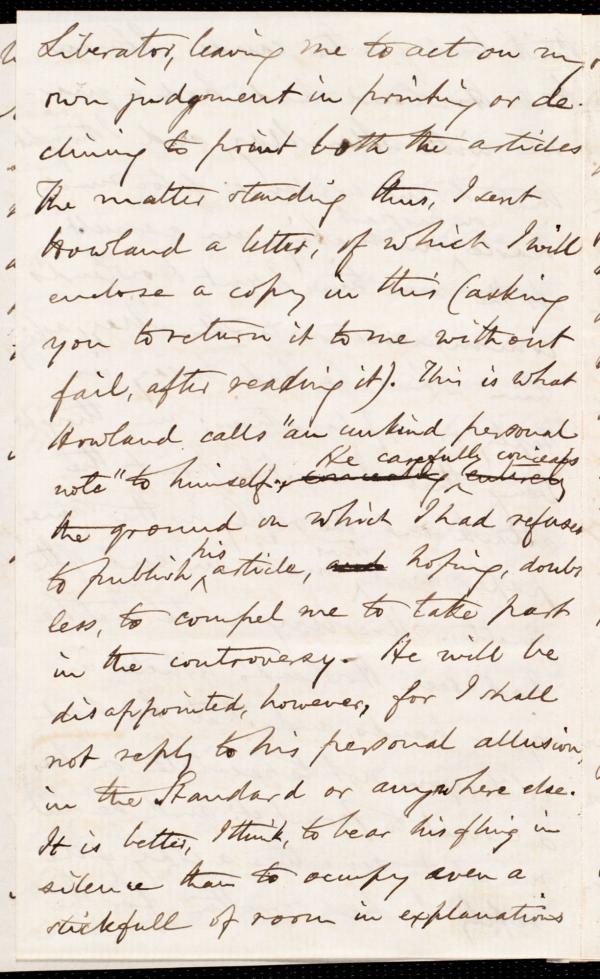 Liberator, leaving me to act on my
own judgment in printing or de-
clining to print both the articles
The matter standing thus, I sent
Howland a letter, of which I will
enclose a copy in this (asking
you to return it to me without
fail, after reading it). This is what
Howland calls "an unkind personal
He carefully conceals
note" to himself, concealing entirely
the ground on which I had refused
his
to publish article, and hoping, doubt
less, to compel me to take part
in the controversy. He will be
disappointed, however, for I shall
not reply to his personal allusion,
in the Standard or anywhere else.
It is better, I think, to bear his fling in
silence than to occupy even a
stickfull of room in explanations